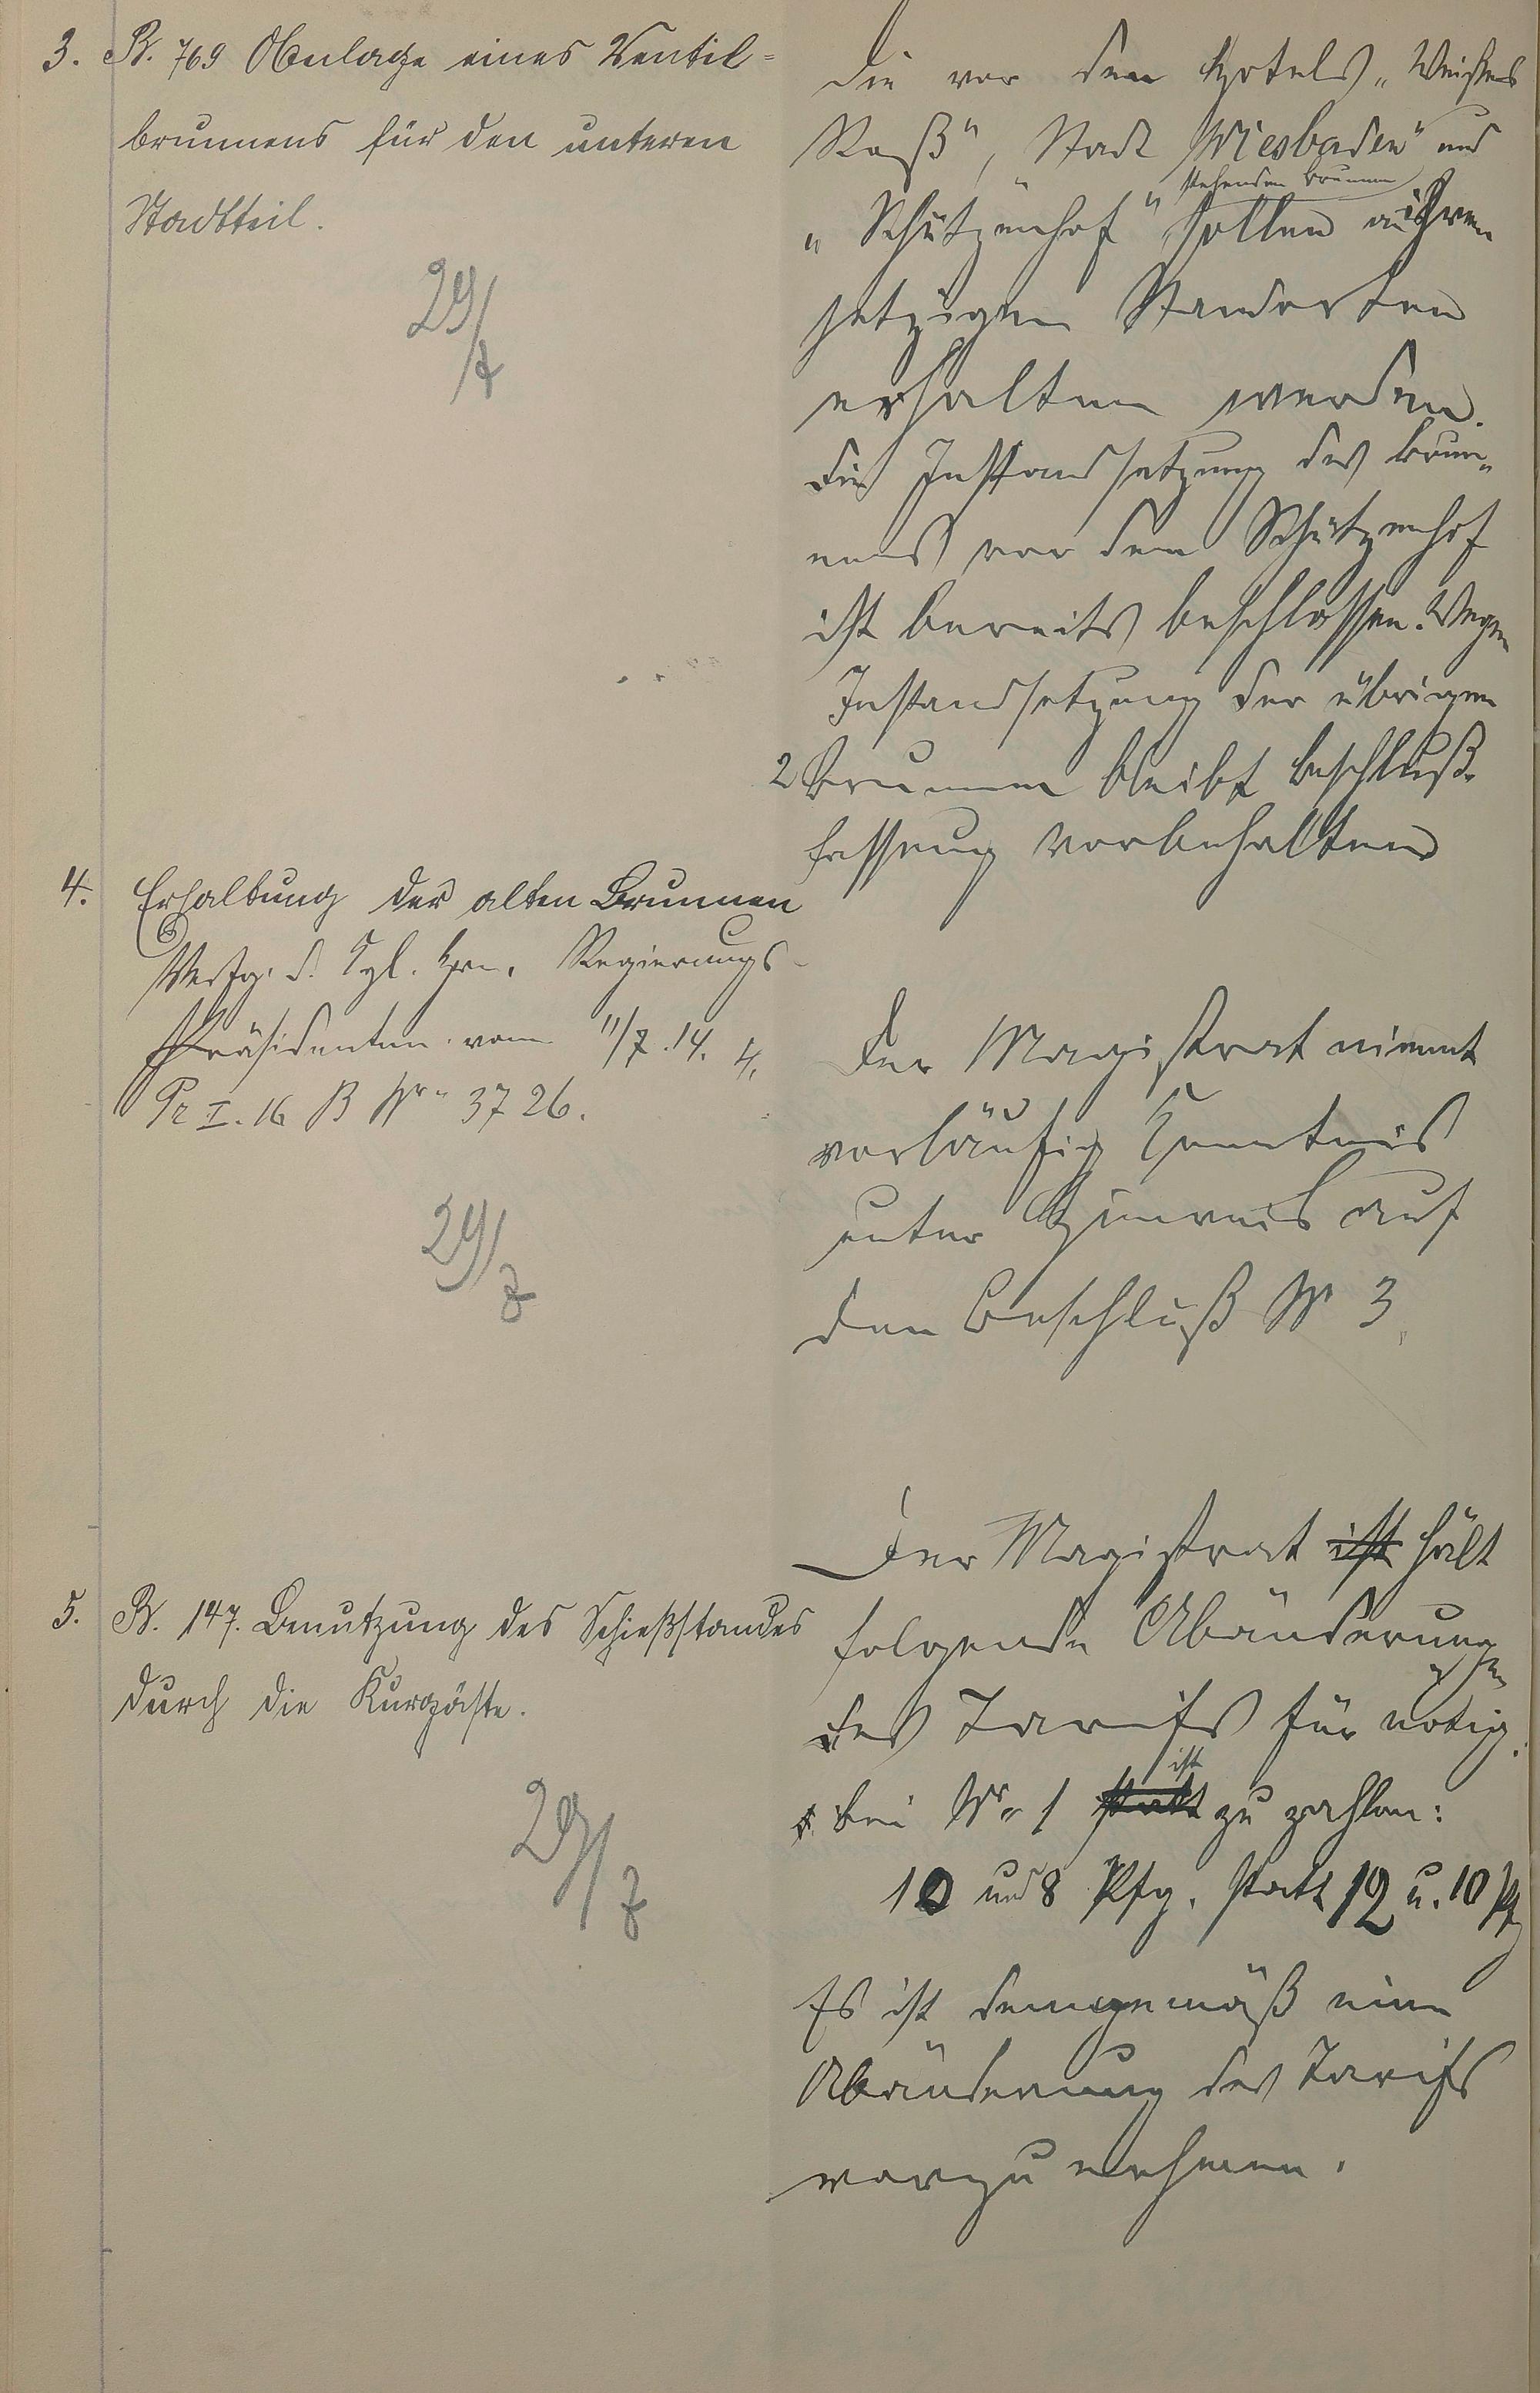 3. B. 769 Anlage eines Ventil=
brunnens für den unteren
Stadtteil.
29/7
Die vor den Hotels „Weißes
Roß“, Stadt Wiesbaden“ und
stehenden Brunnen
„Schützenhof“ sollen an ihren
jetzigen Standorten
erhalten werden.
Die Instandsetzung des Brun„
nens vor dem Schützenhof
ist bereits beschlossen. Wegen
Instandsetzung der übrigen
2 Brunnen bleibt Beschluß„
fassung vorbehalten
4. Erhaltung der alten Brunnen
Verfg. d. Kgl. Hrn. Regierungs-
Präsidenten vom 11/7.14.
Pr I. 16 B Nr. 3726.
29/7
4. Der Magistrat nimmt
vorläufig Kenntnis
unter Hinweis auf
den Beschluß Nr 3.
5. B. 147. Benutzung des Schießstandes
durch die Kurgäste.
29/7
Der Magistrat ist hält
folgende Abänderungen
des Tarifs für nötig.
ist
bei Nr. 1 statt zu zahlen:
10 und 8 Pfg. statt 12 u. 10 Pfg
Es ist demgemäß eine
Abänderung des Tarifs
vorzunehmen.